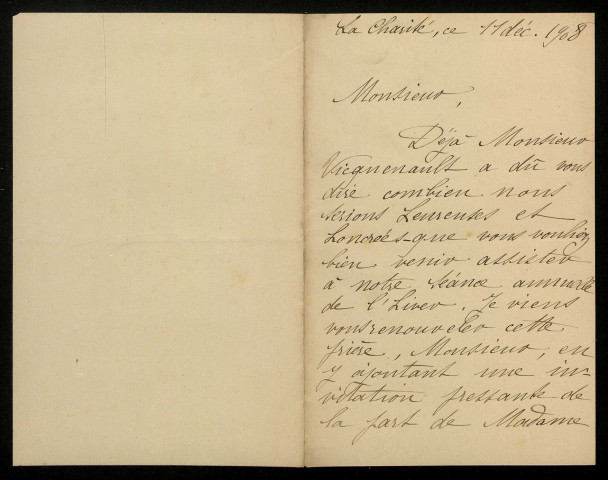 La Charité, ce 11 déc. 1908
Monsieur,
Déjà Monsieur
Vicquenault a dû vous
dire combien nous
serions heureuses et
honorées que vous vouliez
bien venir assister
à notre séance annuelle
de l'hiver. Je viens
vous renouveler cette
prière, Monsieur, en
y ajoutant une in-
vitation pressante de
la part de Madame